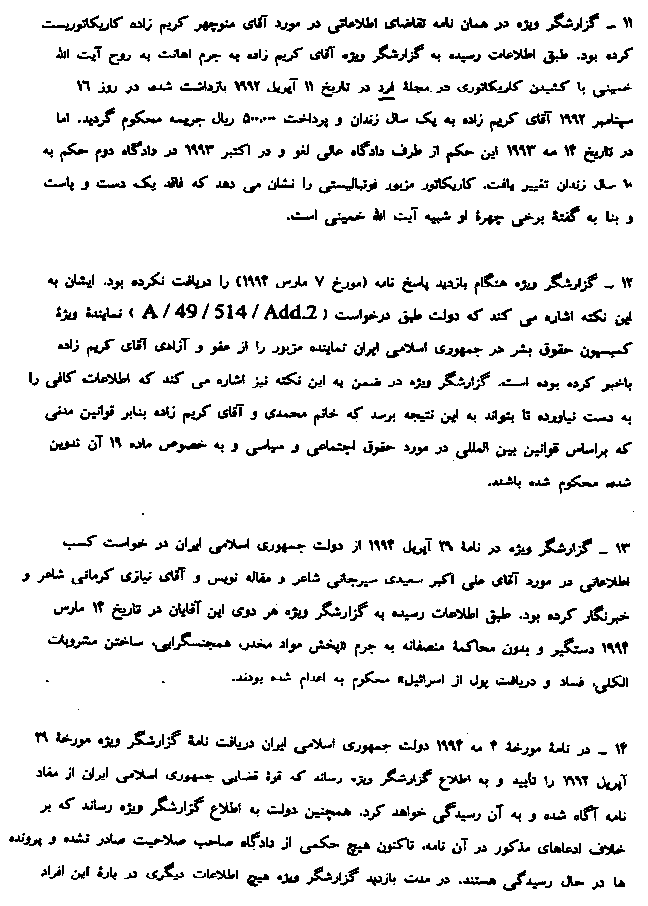 ۱۱ ـ گزارشگر ویژه در همان نامه تقاضای اطلاعاتی در مورد آقای منوچهر کریم زاده کاریکاتوریست
کرده بود. طبق اطلاعات رسیده به گزارشگر ویژه آقای کریم زاده به جرم اهانت به روح آیت الله
خمینی با کشیدن کاریکاتوری در مجلهٔ فرد در تاریخ ۱۱ آپریل ۱۹۹۲ بازداشت شده، در روز ۱۶
سپتامبر ۱۹۹۲ آقای کریم زاده به یک سال زندان و پرداخت ۵۰۰,۰۰۰ ریال جریمه محکوم گردید. اما
در تاریخ ۱۴ مه ۱۹۹۳ این حکم از طرف دادگاه عالی لغو و در اکتبر ۱۹۹۳ در دادگاه دوم حکم به
۱۰ سال زندان تغییر یافت. کاریکاتور مزبور فوتبالیستی را نشان می دهد که فاقد یک دست و پاست
و بنا به گفتهٔ برخی چهرهٔ او شبیه آیت الله خمینی است.
۱۲ ـ گزارشگر ویژه هنگام بازدید پاسخ نامه (مورخ ۷ مارس ۱۹۹۴) را دریافت نکرده بود. ایشان به
این نکته اشاره می کند که دولت طبق درخواست ( A / 49 / 514 / Add.2 ) نمایندهٔ ویژهٔ
کمیسیون حقوق بشر در جمهوری اسلامی ایران نماینده مزبور را از عفو و آزادی آقای کریم زاده
باخبر کرده بوده است. گزارشگر ویژه در ضمن به این نکته نیز اشاره می کند که اطلاعات کافی را
به دست نیاورده تا بتواند به این نتیجه برسد که خانم محمدی و آقای کریم زاده بنابر قوانین مدنی
که براساس قوانین بین المللی در مورد حقوق اجتماعی و سیاسی و به خصوص ماده ۱۹ آن تدوین
شده، محکوم شده باشند.
۱۳ ـ گزارشگر ویژه در نامهٔ ۲۹ آپریل ۱۹۹۴ از دولت جمهوری اسلامی ایران در خواست کسب
اطلاعاتی در مورد آقای علی اکبر سعیدی سیرجانی شاعر و مقاله نویس و آقای نیازی کرمانی شاعر و
خبرنگار کرده بود. طبق اطلاعات رسیده به گزارشگر ویژه هر دوی این آقایان در تاریخ ۱۴ مارس
۱۹۹۴ دستگیر و بدون محاکمهٔ منصفانه به جرم «پخش مواد مخدر، همجنسگرایی، ساختن مشروبات
الکلی، فساد و دریافت پول از اسرائیل» محکوم به اعدام شده بودند.
۱۴ ـ در نامهٔ مورخهٔ ۴ مه ۱۹۹۴ دولت جمهوری اسلامی ایران دریافت نامهٔ گزارشگر ویژه مورخهٔ ۲۹
آپریل را تأیید و به اطلاع گزارشگر ویژه رساند که قوهٔ قضایی جمهوری اسلامی ایران از مفاد
نامه آگاه شده و به آن رسیدگی خواهد کرد. همچنین دولت به اطلاع گزارشگر ویژه رساند که بر
خلاف ادعاهای مذکور در آن نامه، تاکنون هیچ حکمی از دادگاه صاحب صلاحیت صادر نشده و پرونده
ها در حال رسیدگی هستند. در مدت بازدید گزارشگر ویژه هیچ اطلاعات دیگری در بارهٔ این افراد